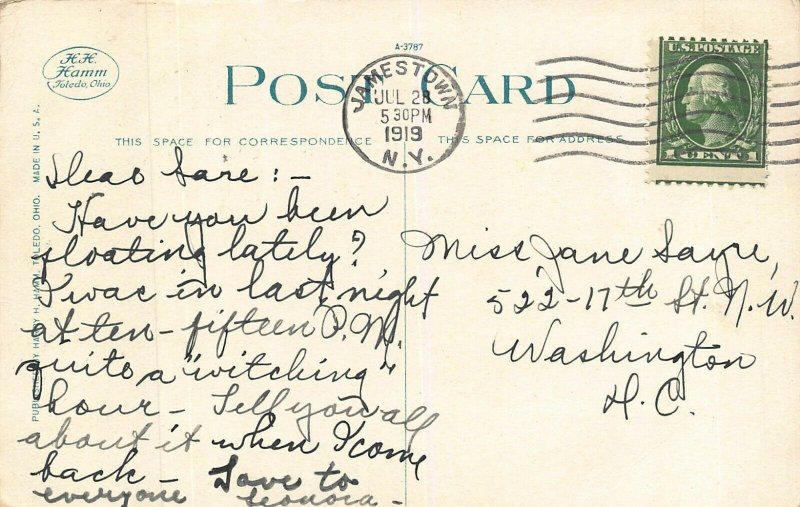 H.H.
Hamm
Toledo, Ohio
A-3787
POST CARD
JAMESTOWN
JUL 28
5 30 PM
1919
N.Y.
U.S. POSTAGE
CENT
THIS SPACE FOR CORRESPONDENCE
THIS SPACE FOR ADDRESS
PUBLISHED BY HARRY H. HAMM, TOLEDO, OHIO. MADE IN U.S.A.
Dear Sare :-
Have you been
floating lately?
I was in last night
at ten-fifteen P.M.
quite a "witching"
hour - Tell you all
about it when I come
back - Love to
everyone Leonora -
Miss Jane Sayre,
522-17th St. N.W.
Washington
D.C.